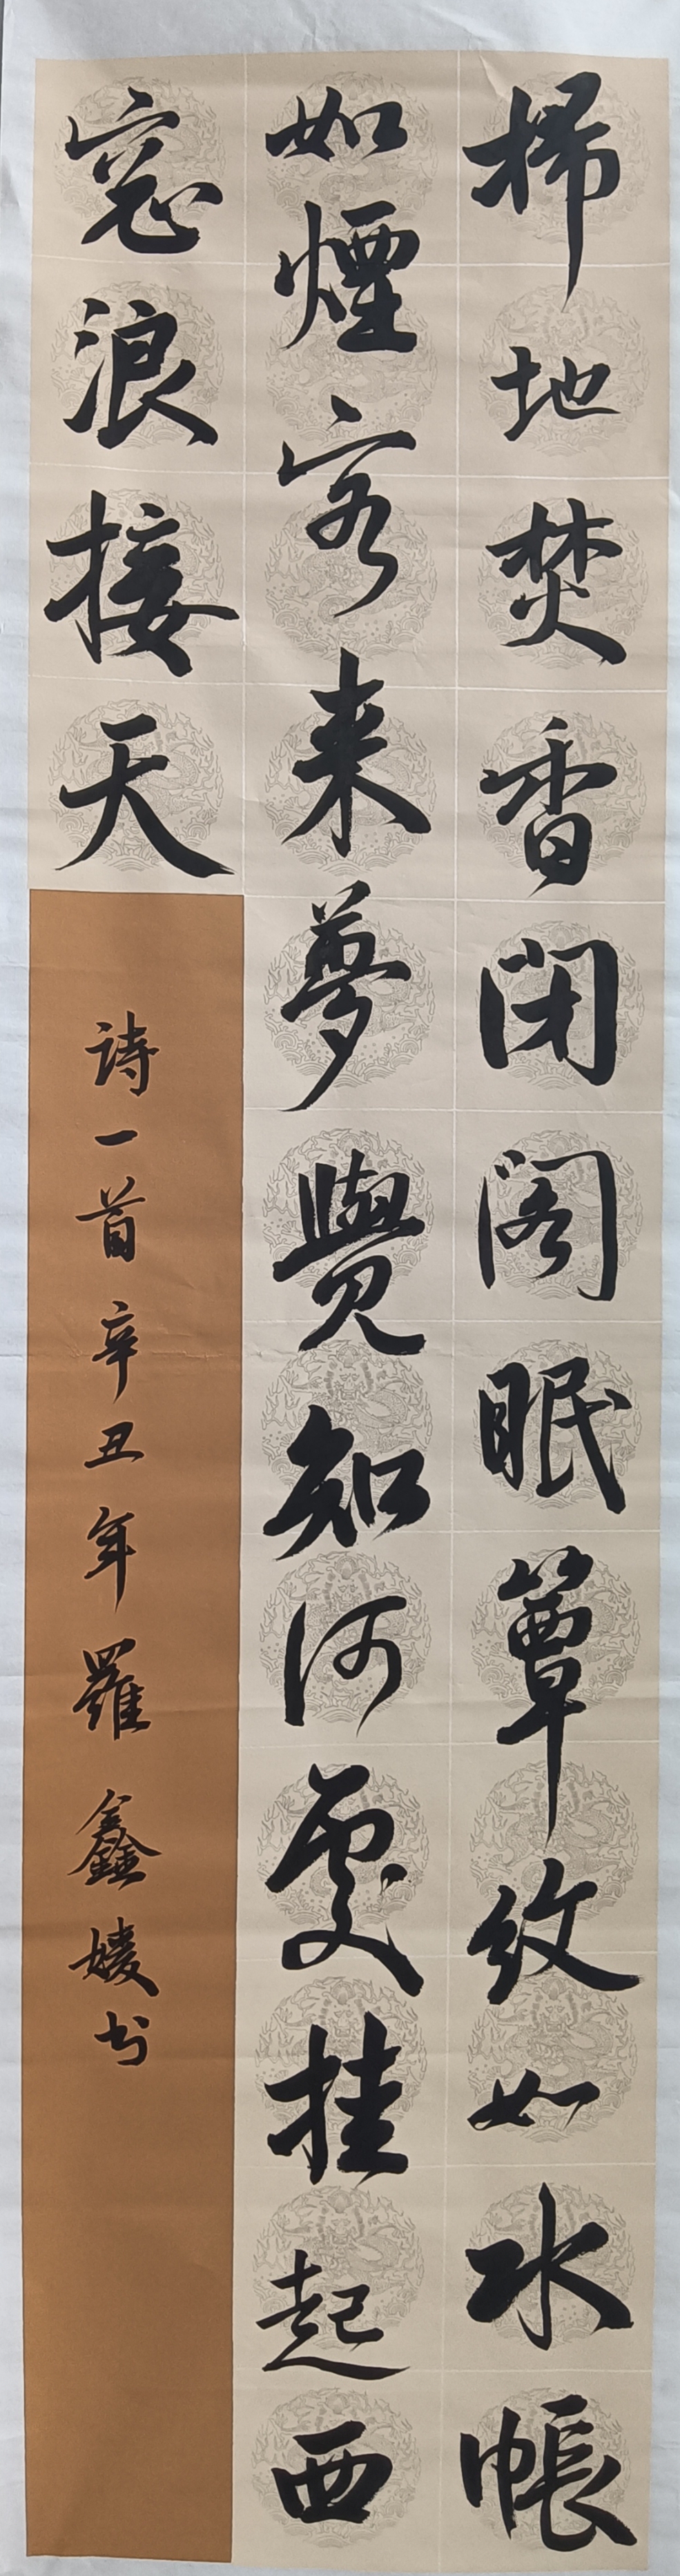 掃地焚香閉閣眠簟紋如水帳
如煙客来夢覺知何處挂起西
窓浪接天
詩一首辛丑年羅鑫媛书